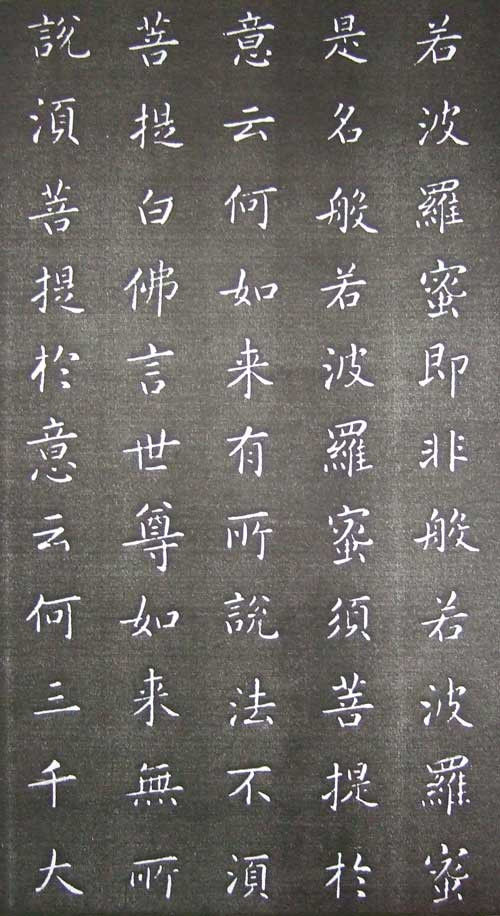 若波羅蜜即非般若波羅蜜
是名般若波羅蜜須菩提於
意云何如来有所說法不湏
菩提白佛言世尊如来無所
說湏菩提於意云何三千大